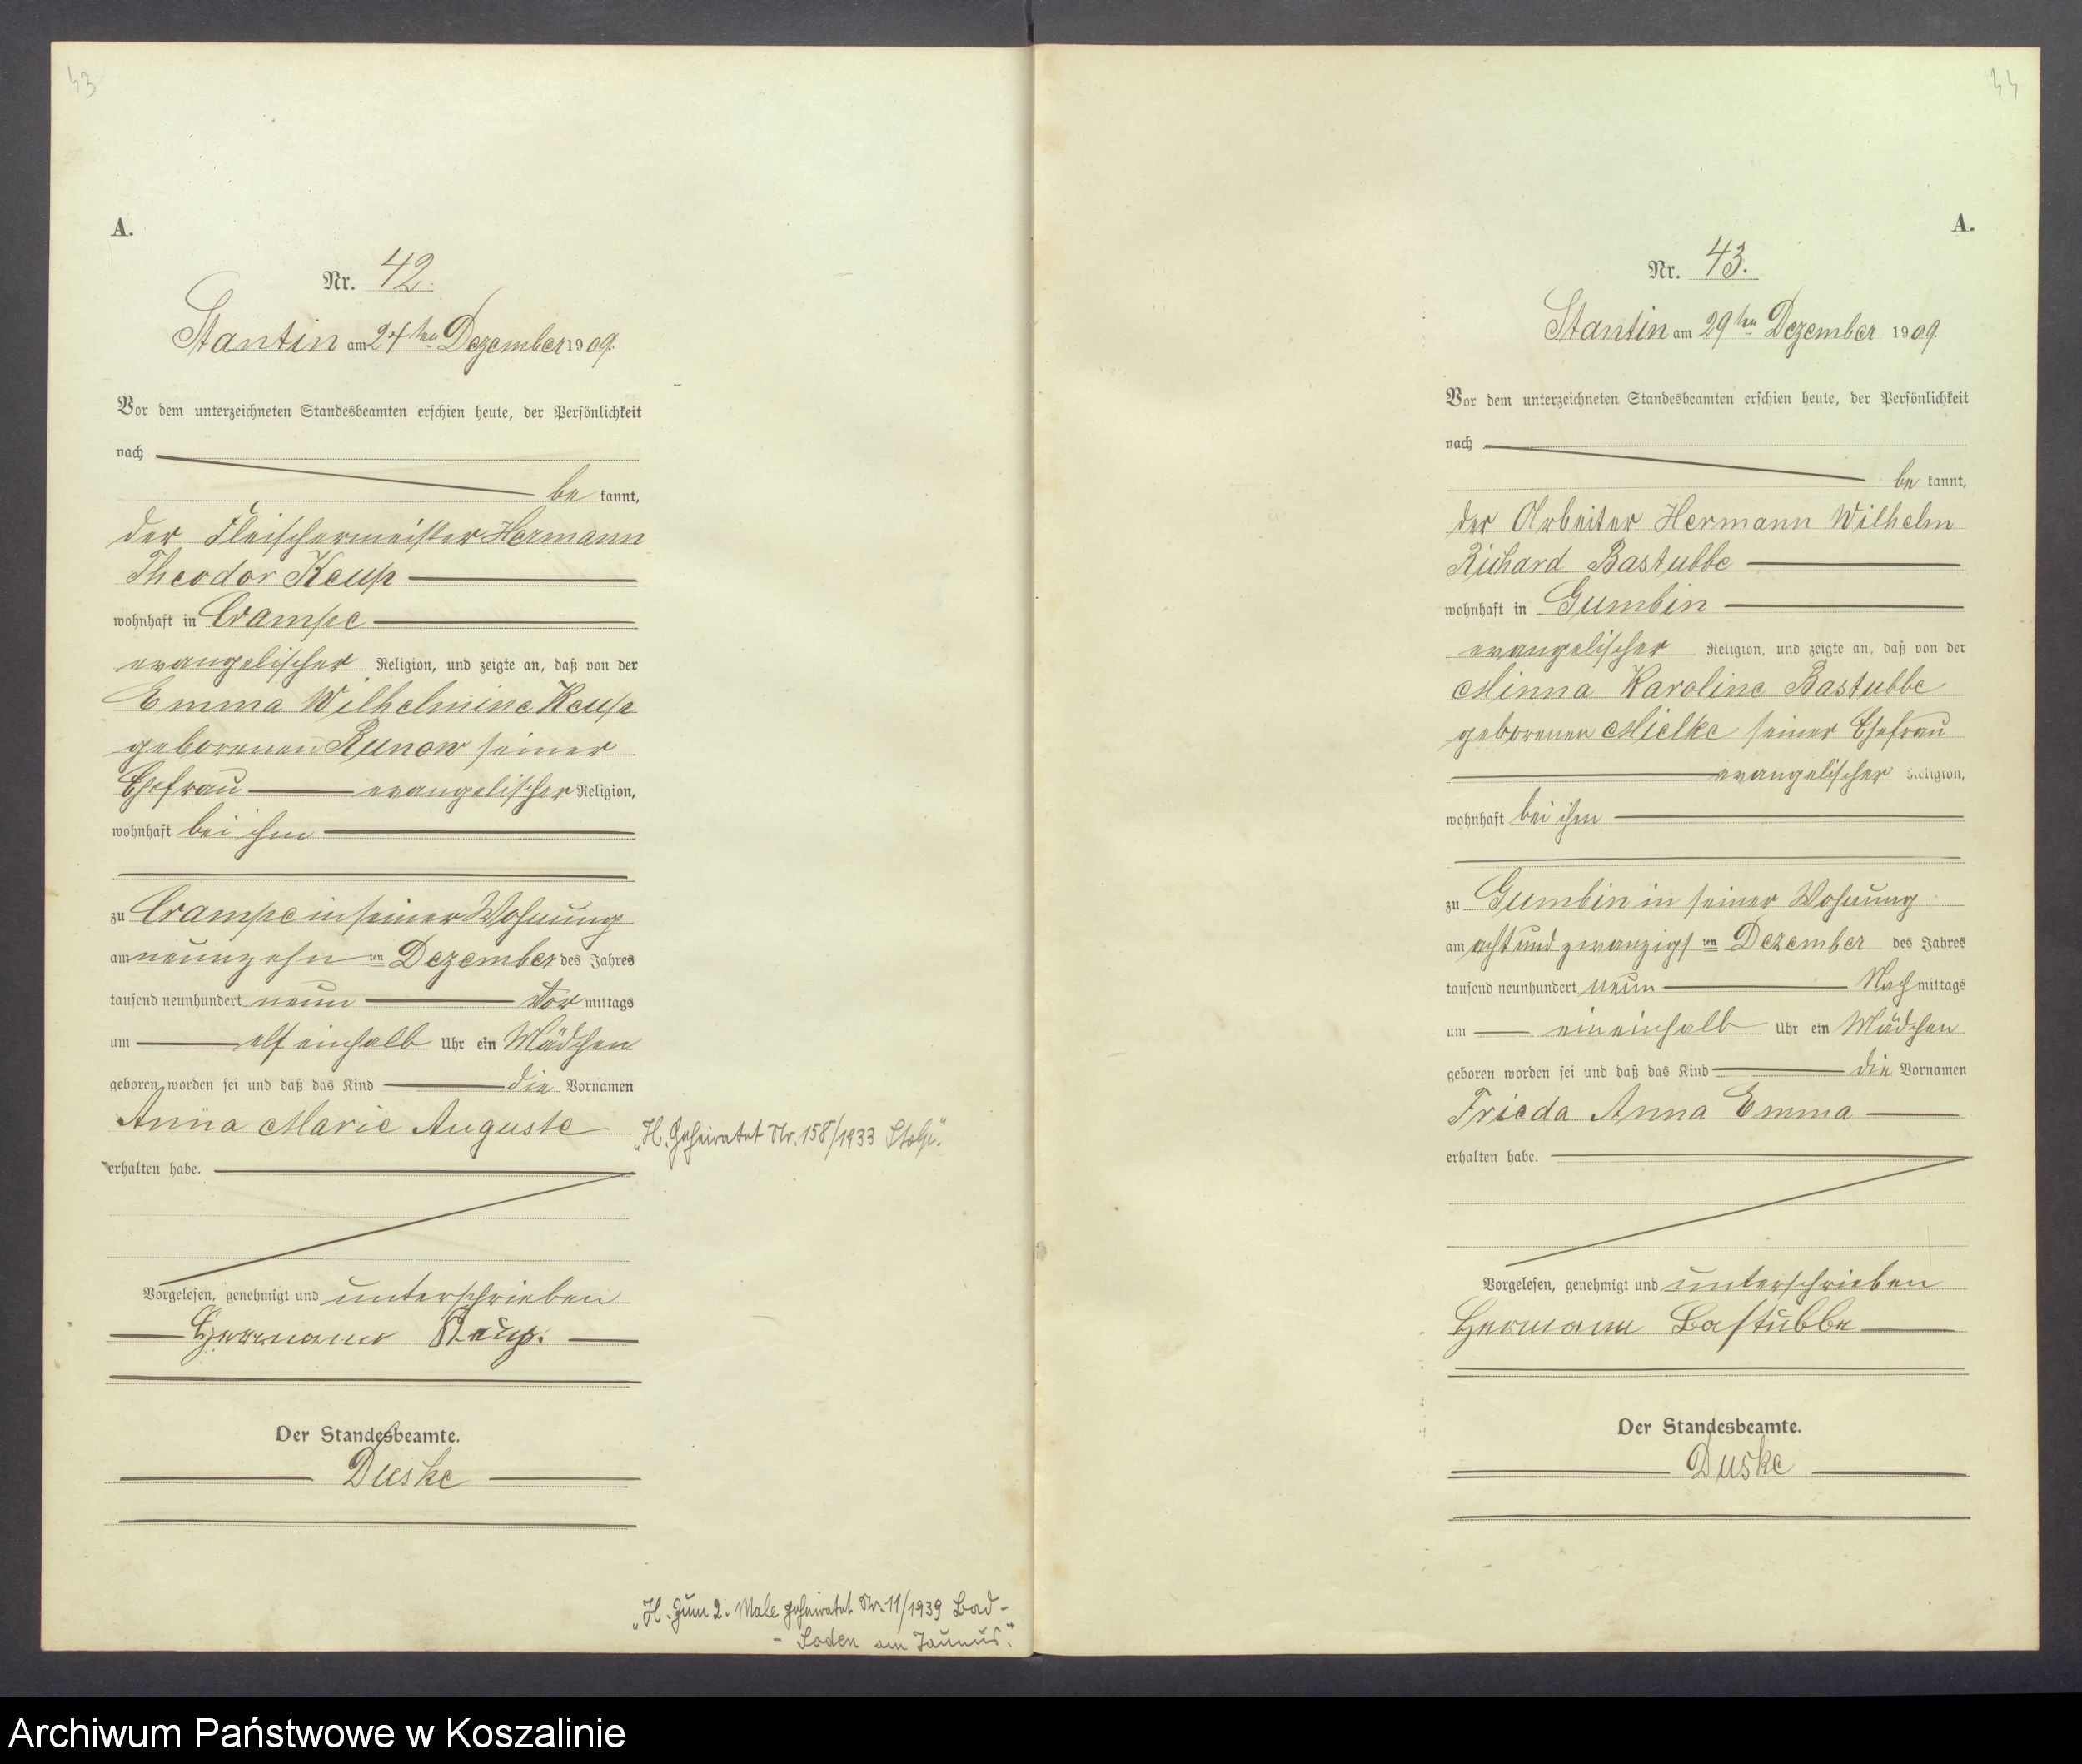 43
A.
Nr. 42.
Stantin am 24ten Dezember 1909.
Vor dem unterzeichneten Standesbeamten erschien heute, der Persönlichkeit
nach
be kannt,
der Fleischermeister Hermann
Theodor Keup
wohnhaft in Crampe
evangelischer Religion, und zeigte an, daß von der
Emma Wilhelmine Keup
geborenen Runow seiner
Ehefrau evangelischer Religion,
wohnhaft bei ihm
zu Crampe in seiner Wohnung
am neunzehn ten Dezember des Jahres
tausend neunhundert neun Vor mittags
um elf einhalb Uhr ein Mädchen
geboren worden sei und daß das Kind die Vornamen
Anna Marie Auguste
„H. Geheiratet Nr. 158/1933 Stolp."
erhalten habe.
Vorgelesen, genehmigt und unterschrieben
Hermann Keup.
Der Standesbeamte.
Duske
„H. Zum 2. Male geheiratet Nr. 11/1939 Bad-
- Soden am Taunus."
44
A.
Nr. 43.
Stantin am 29ten Dezember 1909.
Vor dem unterzeichneten Standesbeamten erschien heute, der Persönlichkeit
nach
be kannt,
der Arbeiter Hermann Wilhelm
Richard Bastubbe
wohnhaft in Gumbin
evangelischer Religion, und zeigte an, daß von der
Minna Karoline Bastubbe
geborenen Mielke seiner Ehefrau
evangelischer Religion,
wohnhaft bei ihm
zu Gumbin in seiner Wohnung
am acht und zwanzigs ten Dezember des Jahres
tausend neunhundert neun Nach mittags
um ein einhalb Uhr ein Mädchen
geboren worden sei und daß das Kind die Vornamen
Frieda Anna Emma
erhalten habe.
Vorgelesen, genehmigt und unterschrieben
Hermann Bastubbe
Der Standesbeamte.
Duske
Archiwum Państwowe w Koszalinie